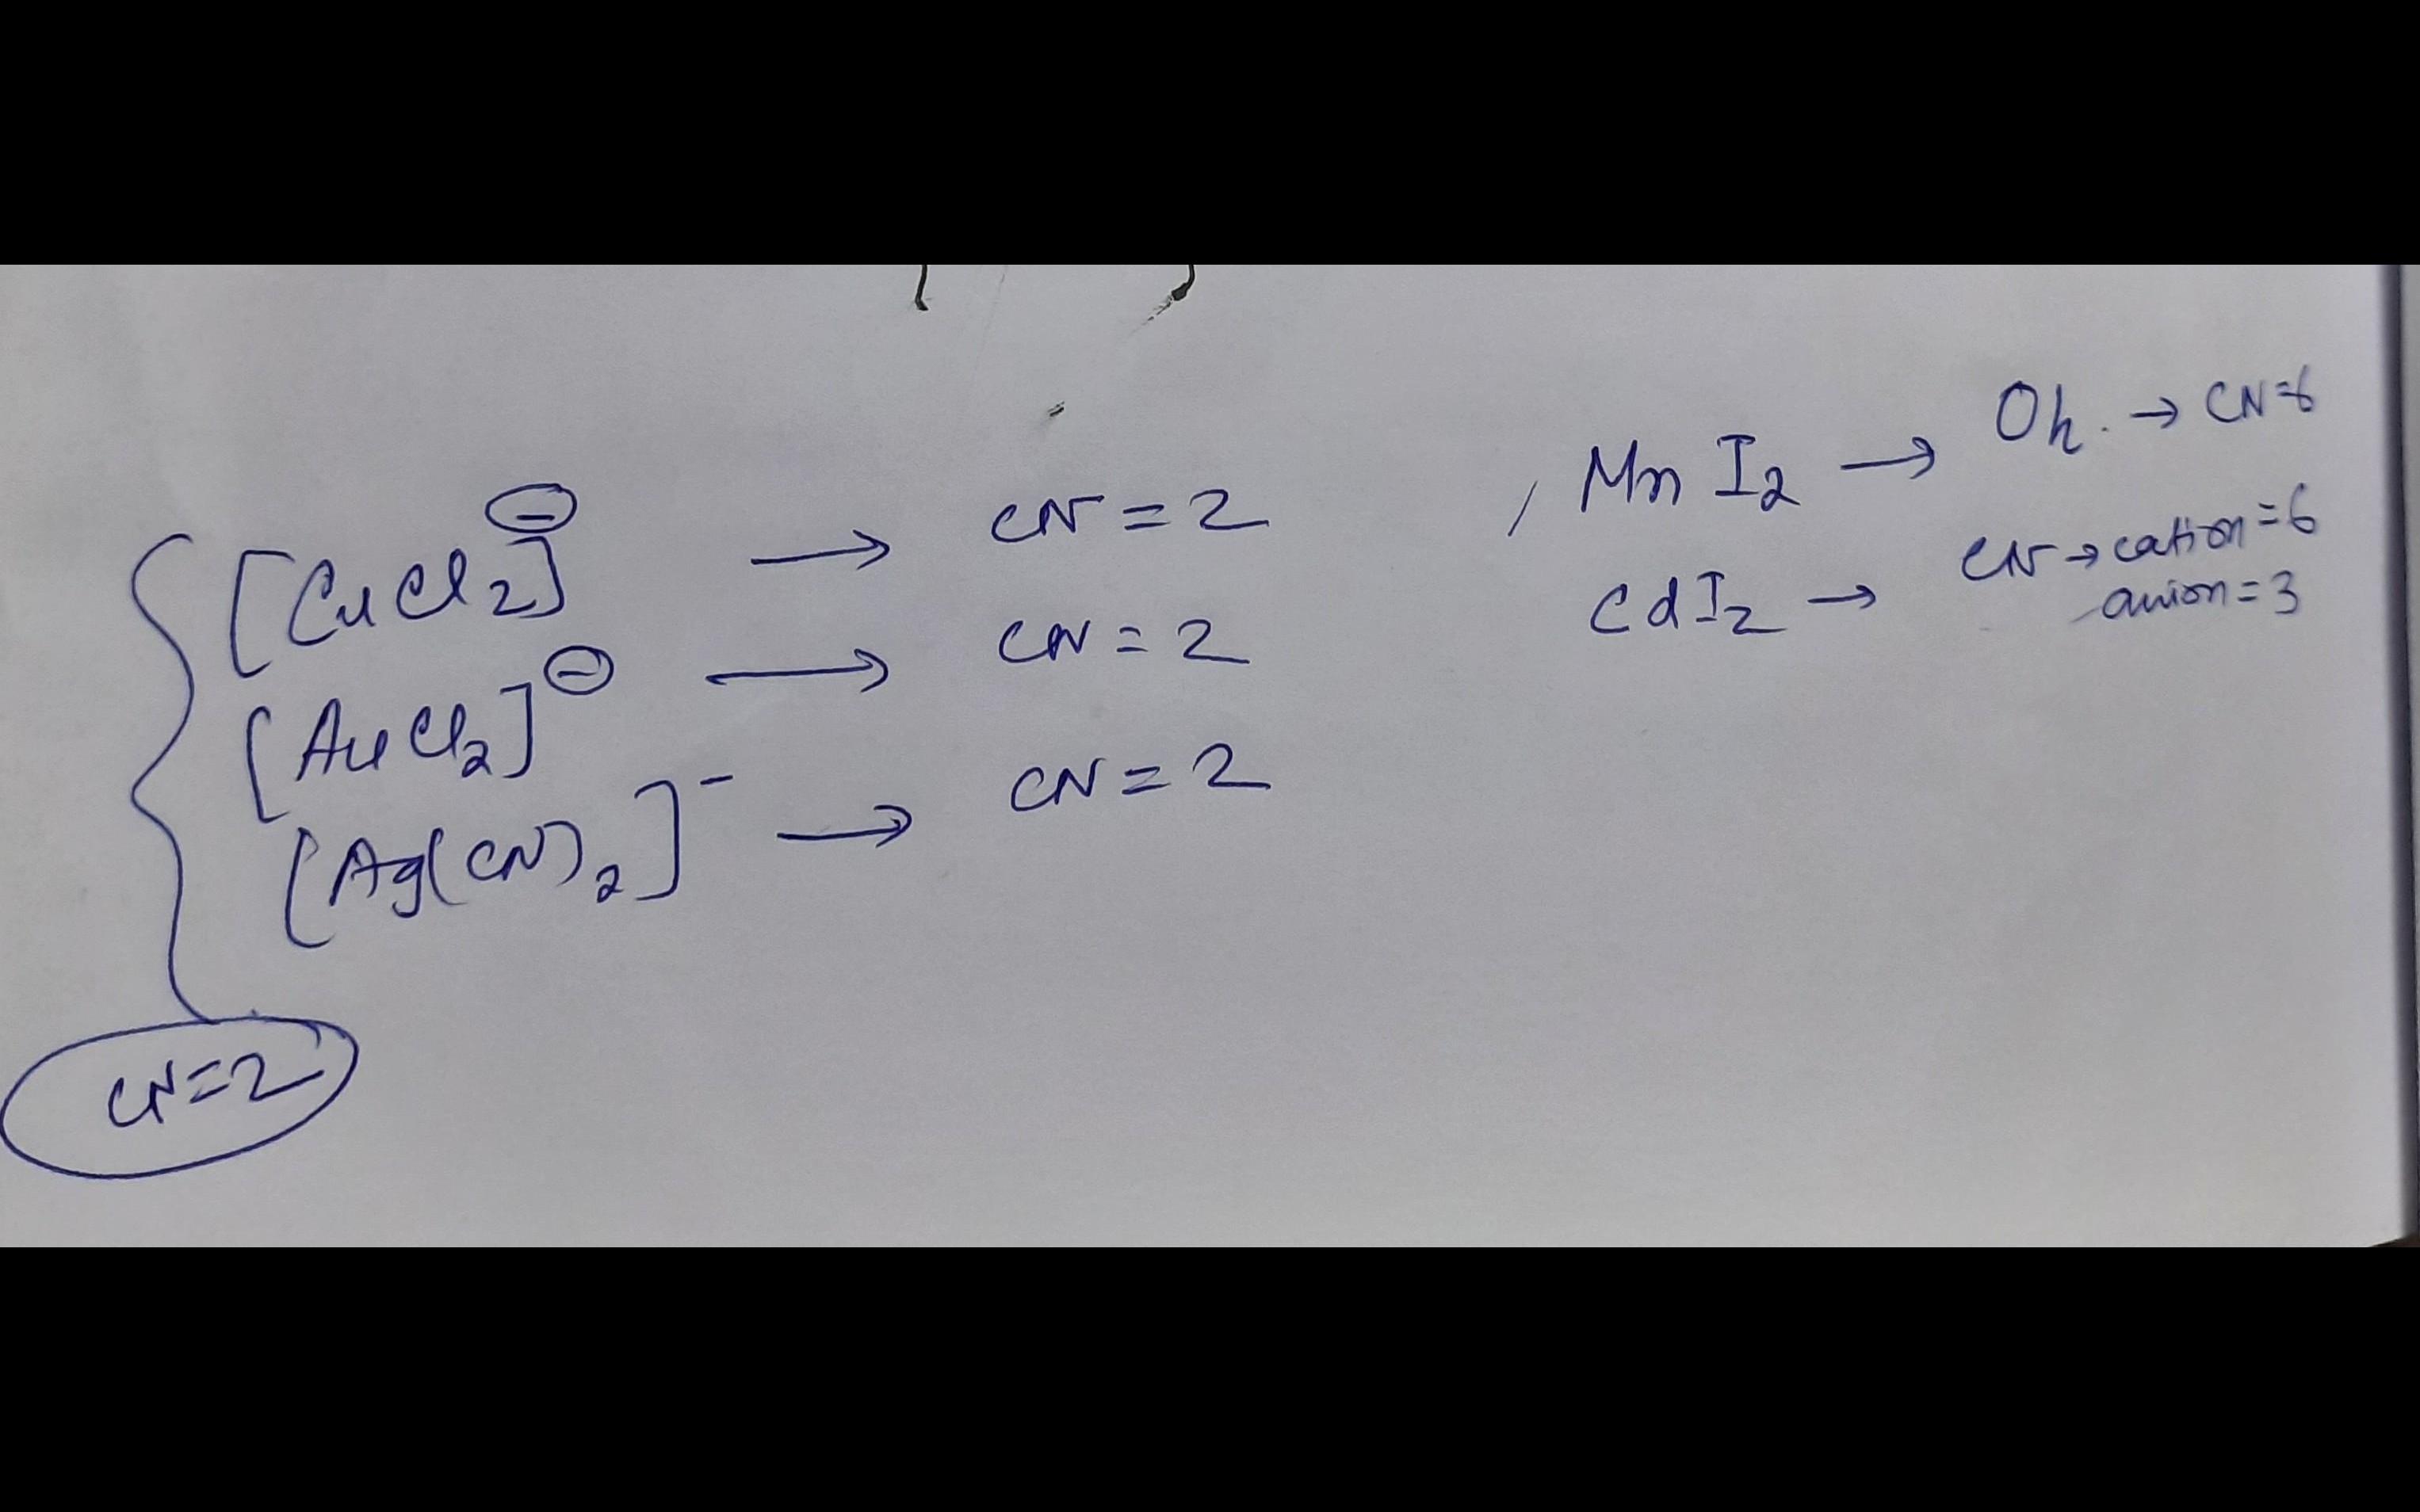 [CuCl2]⊖ → CN = 2
[AuCl2]⊖ → CN = 2
[Ag(CN)2]- → CN = 2
CN=2
, MnI2 → Oh. → CN=6
CdI2 → CN → cation = 6
anion = 3